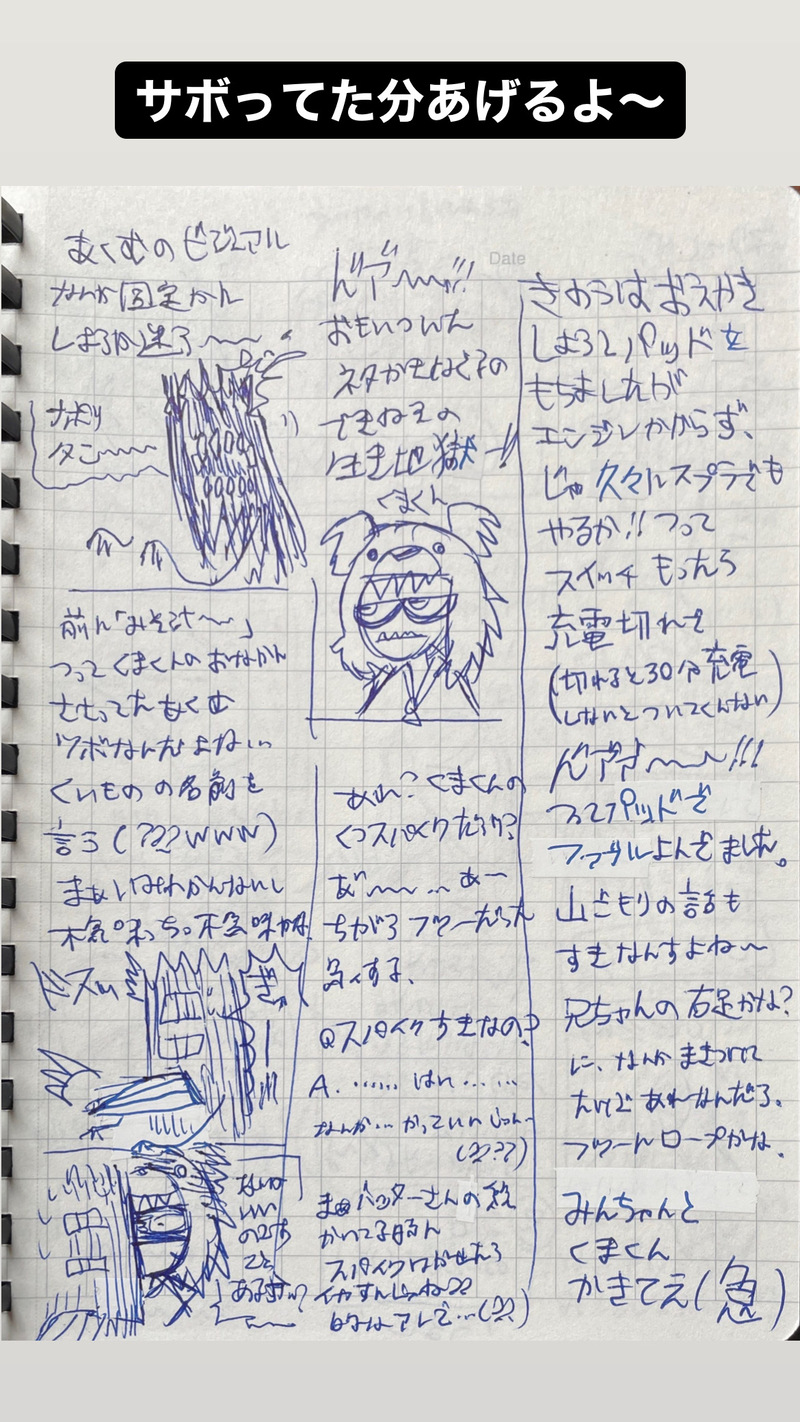 サボってた分あげるよ〜
まくむのビジュアル
なんか固定かん
しようか迷う〜〜
ナポリ
タン〜〜〜
前に「みそ汁〜〜」
つってくまくんのおなかん
ささってたまくむ
ツボなんだよね…
くいものの名前を
言う(???www)
まあいみわかんないし
不気味っちゃ不気味かな
ドスッ
ぎゃ
Date
んア〜〜!!
おもいついた
ネタがきはく子の
できねえの
生き地獄ー!!
くまくん
あれ?くまくんの
くつスパイクだろ?
あ゛〜〜…あー
ちがうフツーだった
急にする、
Qスパイクすきなの?
A. …… はい……
なんか…かっていいじゃん
(???)
まぁバッターさんの絵
かいてる時に
スパイクはかせたら
イカすんじゃね??
的なアレで…(??)
きょうはおえかき
しようとパッドを
もちましたが
エンジンかからず、
じゃ久々にスプラでも
やるか!!つって
スイッチもったら
充電切れて
(切れると30分充電
しないとついてくんない)
んアア〜〜〜!!!
つってパッドで
フツールよんでました。
山ごもりの話も
すきなんすよね〜
兄ちゃんの右足かな?
に、なんかまきついて
たけどあれなんだろ、
フツーにロープかな、
みんちゃんと
くまくん
かきてえ(急)